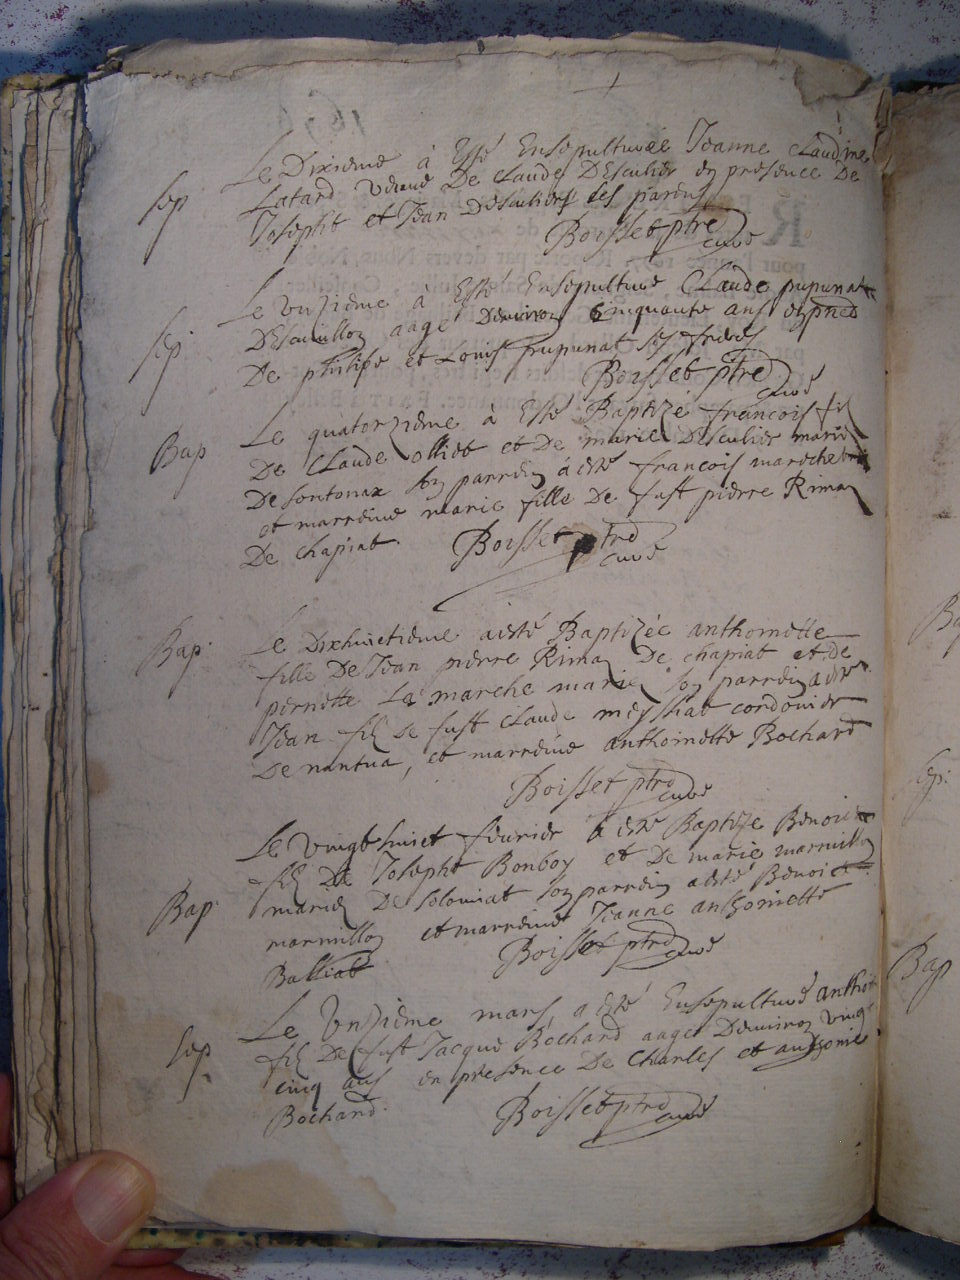 Le Dixieme à Esté Ensepulturée Jeanne Claudine
Sep
Latard veuve De Claude DEsculier en presence De
Joseph et Jean Desculiers ses parens
Boisset ptre
curé
Le unzieme à Esté Ensepulturé Claude pupunat
Sep
DEscuilloz aagé Denviron Cinquante ans en pnce
De philipe et Louis pupunat ses freres
Boisset ptre
curé
Le quatorzieme à Esté Baptizé francois fil
Bap
De Claude olliet et De marie DEsculier mariez
De sontonax son parrein à esté francois
et marreine marie fille De fust pierre Rimaz
De chapiat
Boisset ptre
curé
Le Dixhuictieme a esté Baptizée anthoinette
Bap
fille De Jean pierre Rimaz De chapiat et de
pernette La marche mariez son parrein a esté
Jean fil de fust Claude meyssiat cordonier
De nantua, et marreine anthoinette Bochard
Boisset ptre
curé
Le vingt huict feuvrier a esté Baptize Benoict
fil De Joseph Bonboy et De marie marmilloz
Bap
mariez De Solomiat son parrein a esté Benoict
marmilloz et marreine Jeanne anthoinette
Balliat
Boisset ptre
curé
Le Unzieme mars, a esté Ensepulturé
Sep
fil De fust Jacque Bochard aagé Denviron vingt
cinq ans en presence De Charles et anthoine
Bochard
Boisset ptre
curé